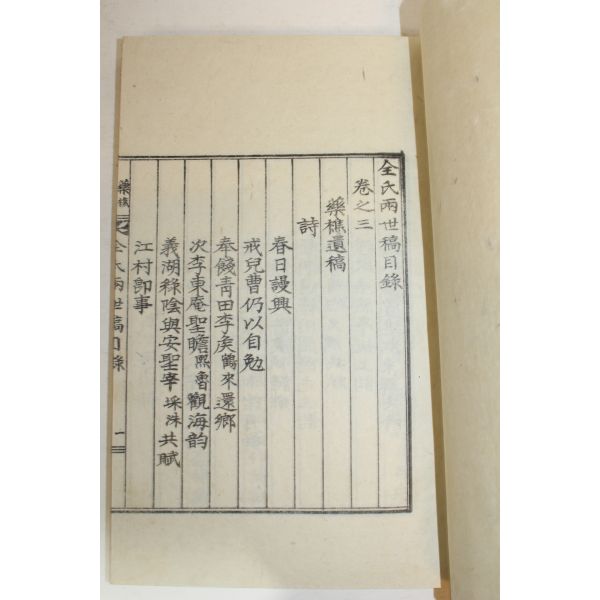 全氏兩世稿目錄
卷之三
藥樵遺稿
詩
春日謾興
戒兒曹仍以自勉
奉餞靑田李矦鶴來還鄕
次李東庵聖瞻熙魯觀海韵
義湖綠陰與安聖宰埰洙共賦
江村卽事
藥樵
全氏兩世稿目錄
一